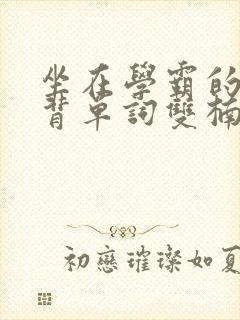 坐在學霸的
背單詞雙楠
初戀璀璨如夏